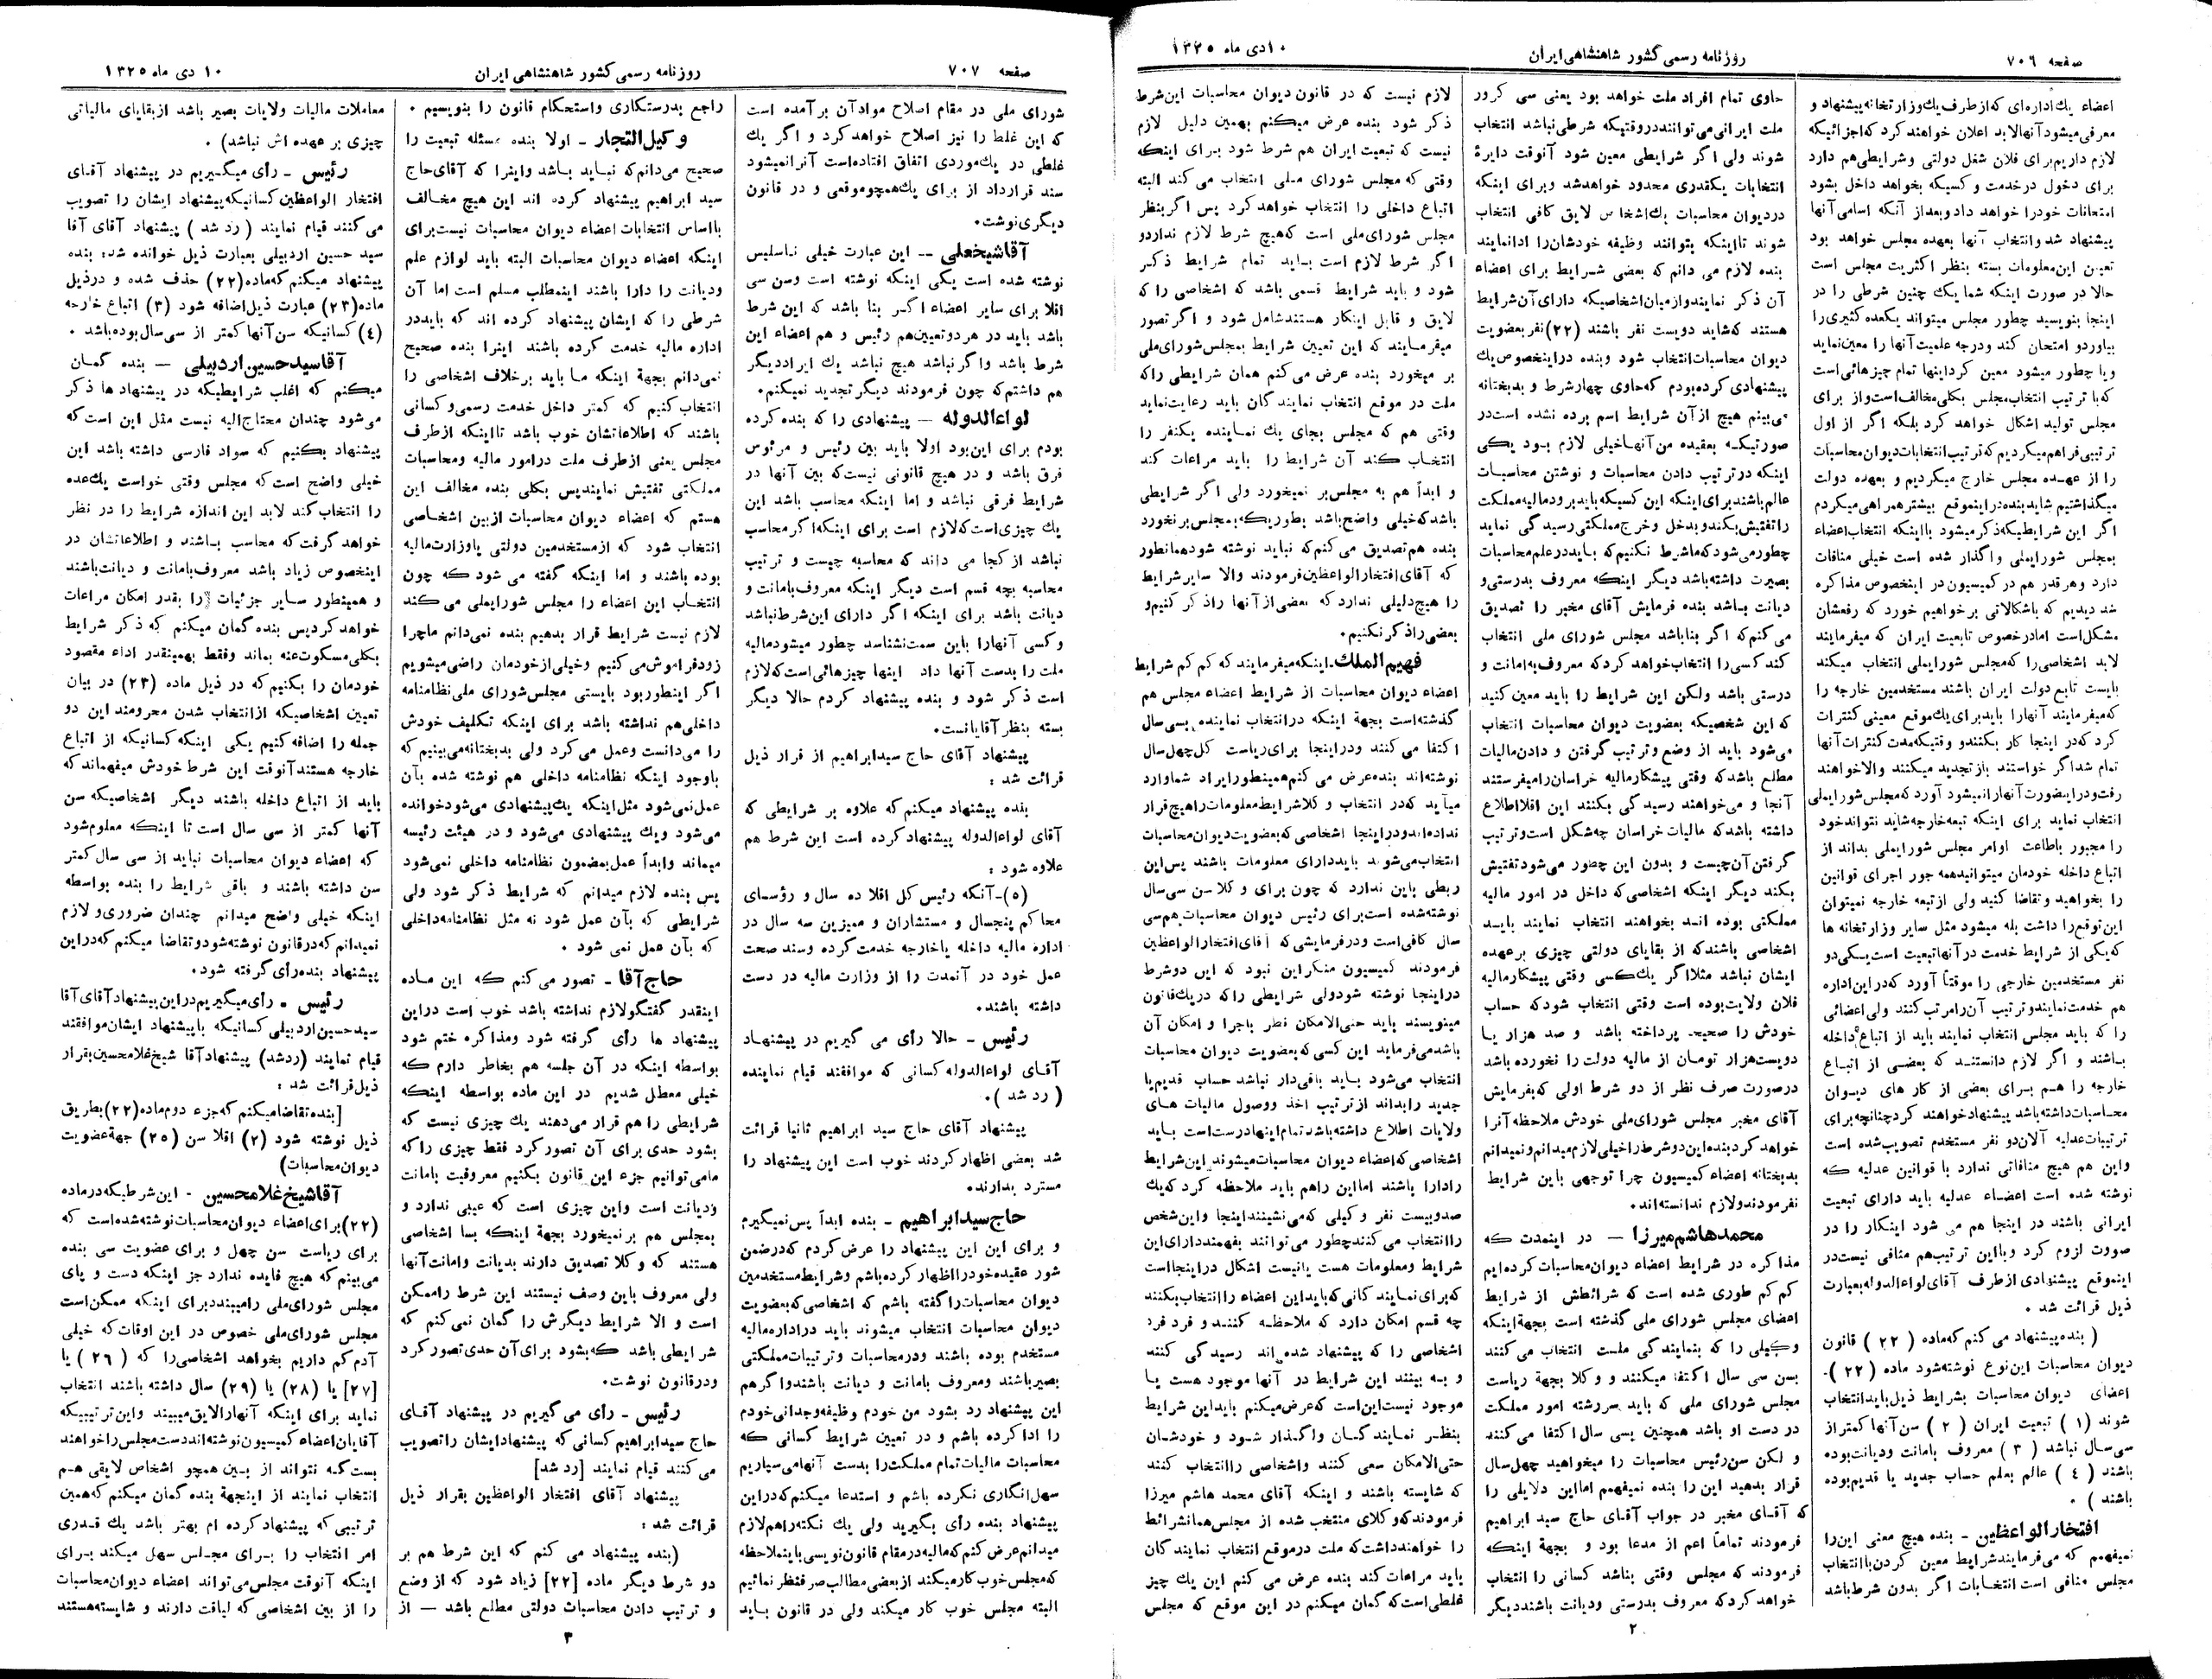 صفحه ۷۰۶
روزنامه رسمی کشور شاهنشاهی ایران
۱۰ دی ماه ۱۳۲۵
اعضاء یك اداره‌ای که از طرف یك وزارتخانه پیشنهاد و
معرفی میشود آنها لابد اعلان خواهند کرد که اجزائیکه
لازم داریم برای فلان شغل دولتی و شرایطی هم دارد
برای دخول در خدمت و کسیکه بخواهد داخل بشود
امتحانات خود را خواهد داد و بعد از آنکه اسامی آنها
پیشنهاد شد و انتخاب آنها بعهده مجلس خواهد بود
تعیین این معلومات بسته بنظر اکثریت مجلس است
حالا در صورت اینکه شما یك چنین شرطی را در
اینجا بنویسید چطور مجلس میتواند یکعده کثیری را
بیاورد و امتحان کند و درجه علمیت آنها را معین نماید
و یا چطور میشود معین کرد اینها تمام چیزهائی است
که با ترتیب انتخاب مجلس بکلی مخالف است و از برای
مجلس تولید اشکال خواهد کرد بلکه اگر از اول
ترتیبی فراهم میکردیم که ترتیب انتخابات دیوان محاسبات
را از عهده مجلس خارج میکردیم و بعهده دولت
میگذاشتیم شاید بنده در اینموقع بیشتر همراهی میکردم
اگر این شرایطیکه ذکر میشود با اینکه انتخاب اعضاء
بمجلس شورایملی واگذار شده است خیلی منافات
دارد و هر قدر هم در کمیسیون در اینخصوص مذاکره
شد دیدیم که باشکالاتی برخواهیم خورد که رفعشان
مشکل است اما در خصوص تابعیت ایران که میفرمایند
لابد اشخاصی را که مجلس شورایملی انتخاب میکند
بایست تابع دولت ایران باشند مستخدمین خارجه را
که میفرمایند آنها را باید برای یك موقع معینی کنترات
کرد که در اینجا کار بکنند و وقتیکه مدت کنترات آنها
تمام شد اگر خواستند باز تجدید میکنند والا خواهند
رفت و در اینصورت آنها را نمیشود آورد که مجلس شورایملی
انتخاب نماید برای اینکه تبعه خارجه شاید نتواند خود
را مجبور باطاعت اوامر مجلس شورایملی بداند از
اتباع داخله خودمان میتوانید همه جور اجرای قوانین
را بخواهید و تقاضا کنید ولی از تبعه خارجه نمیتوان
این توقع را داشت بله میشود مثل سایر وزارتخانه ها
که یکی از شرایط خدمت در آنها تبعیت است یکی دو
نفر مستخدمین خارجی را موقتاً آورد که در این اداره
هم خدمت نمایند و ترتیب آن را مرتب کنند ولی اعضائی
را که باید مجلس انتخاب نمایند باید از اتباع داخله
باشند و اگر لازم دانستند که بعضی از اتباع
خارجه را هم برای بعضی از کار های دیوان
محاسبات داشته باشد پیشنهاد خواهند کرد چنانچه برای
ترتیبات عدلیه آلان دو نفر مستخدم تصویب شده است
و این هم هیچ منافاتی ندارد با قوانین عدلیه که
نوشته شده است اعضاء عدلیه باید دارای تبعیت
ایرانی باشند در اینجا هم می شود اینکار را در
صورت لزوم کرد و با این ترتیب هم منافی نیست در
اینموقع پیشنهادی از طرف آقای لواءالدوله بعبارت
ذیل قرائت شد .
( بنده پیشنهاد می کنم که ماده ( ۲۲ ) قانون
دیوان محاسبات این نوع نوشته شود ماده ( ۲۲ )-
اعضای دیوان محاسبات بشرایط ذیل باید انتخاب
شوند (۱ ) تبعیت ایران ( ۲ ) سن آنها کمتر از
سی سال نباشد ( ۳ ) معروف بامانت و دیانت بوده
باشند ( ٤ ) عالم بعلم حساب جدید یا قدیم بوده
باشند ) .
افتخار الواعظین - بنده هیچ معنی این را
نمیفهمم که می فرمایند شرایط معین کردن با انتخاب
مجلس منافی است انتخابات اگر بدون شرط باشد
حاوی تمام افراد ملت خواهد بود یعنی سی کرور
ملت ایرانی می توانند در وقتیکه شرطی نباشد انتخاب
شوند ولی اگر شرایطی معین شود آنوقت دایرۀ
انتخابات یکقدری محدود خواهد شد و برای اینکه
در دیوان محاسبات یك اشخاص لایق کافی انتخاب
شوند تا اینکه بتوانند وظیفه خودشان را ادا نمایند
بنده لازم می دانم که بعضی شرایط برای اعضاء
آن ذکر نمایند و از میان اشخاصیکه دارای آن شرایط
هستند که شاید دویست نفر باشند (۲۲) نفر بعضویت
دیوان محاسبات انتخاب شود و بنده در اینخصوص یك
پیشنهادی کرده بودم که حاوی چهار شرط و بدبختانه
می بینم هیچ از آن شرایط اسم برده نشده است در
صورتیکه بعقیده من آنها خیلی لازم بود یکی
اینکه در ترتیب دادن محاسبات و نوشتن محاسبات
عالم باشند برای اینکه این کسیکه باید برود مالیه مملکت
را تفتیش بکند و بدخل و خرج مملکتی رسیدگی نماید
چطور می شود که ما شرط نکنیم که باید در علم محاسبات
بصیرت داشته باشد دیگر اینکه معروف بدرستی و
دیانت باشد بنده فرمایش آقای مخبر را تصدیق
می کنم که اگر بنا باشد مجلس شورای ملی انتخاب
کند کسی را انتخاب خواهد کرد که معروف به امانت و
درستی باشد ولکن این شرایط را باید معین کنید
که این شخصیکه بعضویت دیوان محاسبات انتخاب
می شود باید از وضع و ترتیب گرفتن و دادن مالیات
مطلع باشد که وقتی پیشکار مالیه خراسان را میفرستند
آنجا و می خواهند رسیدگی بکنند این اقلا اطلاع
داشته باشد که مالیات خراسان چه شکل است و ترتیب
گرفتن آن چیست و بدون این چطور می شود تفتیش
بکند دیگر اینکه اشخاصی که داخل در امور مالیه
مملکتی بوده اند بخواهند انتخاب نمایند باید
اشخاصی باشند که از بقایای دولتی چیزی بر عهده
ایشان نباشد مثلا اگر یك کسی وقتی پیشکار مالیه
فلان ولایت بوده است وقتی انتخاب شود که حساب
خودش را صحیح پرداخته باشد و صد هزار یا
دویست هزار تومان از مالیه دولت را نخورده باشد
در صورت صرف نظر از دو شرط اولی که بفرمایش
آقای مخبر مجلس شورای ملی خودش ملاحظه آنرا
خواهد کرد بنده این دو شرط را خیلی لازم میدانم و نمیدانم
بدبختانه اعضاء کمیسیون چرا توجهی باین شرایط
نفرمودند و لازم ندانسته اند .
محمد هاشم میرزا — در اینمدت که
مذاکره در شرایط اعضاء دیوان محاسبات کرده ایم
کم کم طوری شده است که شرائطش از شرایط
اعضای مجلس شورای ملی گذشته است بجهة اینکه
وکیلی را که بنمایندگی ملت انتخاب می کنند
بسن سی سال اکتفا میکنند و وکلا بجهة ریاست
مجلس شورای ملی که باید سررشته امور مملکت
در دست او باشد همچنین بسی سال اکتفا می کنند
و لکن سن رئیس محاسبات را میخواهید چهل سال
قرار بدهید این را بنده نمیفهمم اما این دلایلی را
که آقای مخبر در جواب آقای حاج سید ابراهیم
فرمودند تماماً اعم از مدعا بود و بجهة اینکه
فرمودند که مجلس وقتی بناشد کسانی را انتخاب
خواهد کرد که معروف بدرستی و دیانت باشند دیگر
لازم نیست که در قانون دیوان محاسبات این شرط
ذکر شود بنده عرض میکنم بهمین دلیل لازم
نیست که تبعیت ایران هم شرط شود برای اینکه
وقتی که مجلس شورای ملی انتخاب می کند البته
اتباع داخلی را انتخاب خواهد کرد پس اگر بنظر
مجلس شورای ملی است که هیچ شرط لازم ندارد و
اگر شرط لازم است باید تمام شرایط ذکر
شود و باید شرایط قسمی باشد که اشخاصی را که
لایق و قابل اینکار هستند شامل شود و اگر تصور
میفرمایند که این تعیین شرایط بمجلس شورای ملی
بر میخورد بنده عرض می کنم همان شرایطی را که
ملت در موقع انتخاب نمایندگان باید رعایت نماید
وقتی هم که مجلس بجای یك نماینده یکنفر را
انتخاب کند آن شرایط را باید مراعات کند
و ابداً هم به مجلس بر نمیخورد ولی اگر شرایطی
باشد که خیلی واضح باشد بطوریکه بمجلس بر نخورد
بنده هم تصدیق می کنم که نباید نوشته شود همانطور
که آقای افتخار الواعظین فرمودند والا سایر شرایط
را هیچ دلیلی ندارد که بعضی از آنها را ذکر کنیم و
بعضی را ذکر نکنیم.
فهیم الملك - اینکه میفرمایند که کم کم شرایط
اعضاء دیوان محاسبات از شرایط اعضاء مجلس هم
گذشته است بجهة اینکه در انتخاب نماینده بسی سال
اکتفا می کنند و در اینجا برای ریاست کل چهل سال
نوشته اند بنده عرض می کنم همینطور ایراد شما وارد
میآید که در انتخاب وکلا شرایط معلومات را هیچ قرار
نداده اند و در اینجا اشخاصی که بعضویت دیوان محاسبات
انتخاب می شوند باید دارای معلومات باشند پس این
ربطی باین ندارد که چون برای وکلا سن سی سال
نوشته شده است برای رئیس دیوان محاسبات هم سی
سال کافی است و در فرمایشی که آقای افتخار الواعظین
فرمودند کمیسیون منکر این نبود که این دو شرط
در اینجا نوشته شود ولی شرایطی را که در یك قانون
مینویسند باید حتی الامکان نظر باجرا و امکان آن
باشد می فرماید این کسی که بعضویت دیوان محاسبات
انتخاب می شود باید باقی دار نباشد حساب قدیم یا
جدید را بداند از ترتیب اخذ و وصول مالیات های
ولایات اطلاع داشته باشد تمام اینها درست است باید
اشخاصی که اعضاء دیوان محاسبات میشوند این شرایط
را دارا باشند اما این را هم باید ملاحظه کرد که یك
صد و بیست نفر وکیلی که می نشینند اینجا و این شخص
را انتخاب می کنند چطور می توانند بفهمند دارای این
شرایط و معلومات هست یا نیست اشکال در اینجا است
که برای نمایندگانی که باید این اعضاء را انتخاب بکنند
چه قسم امکان دارد که ملاحظه کنند و فرد فرد
اشخاصی را که پیشنهاد شده اند رسیدگی کنند
و به بینند این شرایط در آنها موجود هست یا
موجود نیست این است که عرض میکنم باید این شرایط
بنظر نمایندگان واگذار شود و خودشان
حتی الامکان سعی کنند و اشخاصی را انتخاب کنند
که شایسته باشند و اینکه آقای محمد هاشم میرزا
فرمودند که وکلای منتخب شده از مجلس همان شرائط
را خواهند داشت که ملت در موقع انتخاب نمایندگان
باید مراعات کند بنده عرض می کنم این یك چیز
غلطی است که گمان میکنم در این موقع که مجلس
۲
صفحه ۷۰۷
روزنامه رسمی کشور شاهنشاهی ایران
۱۰ دی ماه ۱۳۲۵
شورای ملی در مقام اصلاح مواد آن برآمده است
که این غلط را نیز اصلاح خواهد کرد و اگر یك
غلطی در یك موردی اتفاق افتاده است آنرا نمیشود
سند قرارداد از برای یك همچو موقعی و در قانون
دیگری نوشت.
آقا شیخعلی -- این عبارت خیلی ناسلیس
نوشته شده است یکی اینکه نوشته است و سن سی
اقلا برای سایر اعضاء اگر بنا باشد که این شرط
باشد باید در هر دو تعیین هم رئیس و هم اعضاء این
شرط باشد و اگر نباشد هیچ نباشد یك ایراد دیگر
هم داشتم که چون فرمودند دیگر تجدید نمیکنم.
لواءالدوله — پیشنهادی را که بنده کرده
بودم برای این بود اولا باید بین رئیس و مرئوس
فرق باشد و در هیچ قانونی نیست که بین آنها در
شرایط فرقی نباشد و اما اینکه محاسب باشد این
یك چیزی است که لازم است برای اینکه اگر محاسب
نباشد از کجا می داند که محاسبه چیست و ترتیب
محاسبه بچه قسم است دیگر اینکه معروف بامانت و
دیانت باشد برای اینکه اگر دارای این شرط نباشد
و کسی آنها را باین سمت نشناسد چطور میشود مالیه
ملت را بدست آنها داد اینها چیزهائی است که لازم
است ذکر شود و بنده پیشنهاد کردم حالا دیگر
بسته بنظر آقایانست.
پیشنهاد آقای حاج سید ابراهیم از قرار ذیل
قرائت شد :
بنده پیشنهاد میکنم که علاوه بر شرایطی که
آقای لواءالدوله پیشنهاد کرده است این شرط هم
علاوه شود :
(۵)-آنکه رئیس کل اقلا ده سال و رؤسای
محاکم پنجسال و مستشاران و ممیزین سه سال در
اداره مالیه داخله یا خارجه خدمت کرده و سند صحت
عمل خود در آنمدت را از وزارت مالیه در دست
داشته باشند.
رئیس - حالا رأی می گیریم در پیشنهاد
آقای لواءالدوله کسانی که موافقند قیام نمایند
( رد شد ).
پیشنهاد آقای حاج سید ابراهیم ثانیا قرائت
شد بعضی اظهار کردند خوب است این پیشنهاد را
مسترد بدارند.
حاج سید ابراهیم - بنده ابداً پس نمیگیرم
و برای این این پیشنهاد را عرض کردم که در ضمن
شور عقیده خود را اظهار کرده باشم و شرایط مستخدمین
دیوان محاسبات را گفته باشم که اشخاصی که بعضویت
دیوان محاسبات انتخاب میشوند باید در اداره مالیه
مستخدم بوده باشند و در محاسبات و ترتیبات مملکتی
بصیر باشند و معروف بامانت و دیانت باشند و اگر هم
این پیشنهاد رد بشود من خودم وظیفه وجدانی خودم
را ادا کرده باشم و در تعیین شرایط کسانی که
محاسبات مالیات تمام مملکت را بدست آنها می سپاریم
سهل انگاری نکرده باشم و استدعا میکنم که در این
پیشنهاد بنده رأی بگیرید ولی یك نکته را هم لازم
میدانم عرض کنم که مالیه در مقام قانون نویسی باینملاحظه
که مجلس خوب کار میکند از بعضی مطالب صرفنظر نمائیم
البته مجلس خوب کار میکند ولی در قانون باید
راجع بدرستکاری و استحکام قانون را بنویسیم .
وکیل التجار - اولا بنده مسئله تبعیت را
صحیح می دانم که نباید باشد و اینرا که آقای حاج
سید ابراهیم پیشنهاد کرده اند این هیچ مخالف
با اساس انتخابات اعضاء دیوان محاسبات نیست برای
اینکه اعضاء دیوان محاسبات البته باید لوازم علم
و دیانت را دارا باشند اینمطلب مسلم است اما آن
شرطی را که ایشان پیشنهاد کرده اند که باید در
اداره مالیه خدمت کرده باشند اینرا بنده صحیح
نمی دانم بجهة اینکه ما باید برخلاف اشخاصی را
انتخاب کنیم که کمتر داخل خدمت رسمی و کسانی
باشند که اطلاعاتشان خوب باشد تا اینکه از طرف
مجلس یعنی از طرف ملت در امور مالیه و محاسبات
مملکتی تفتیش نمایند پس بکلی بنده مخالف این
هستم که اعضاء دیوان محاسبات از بین اشخاصی
انتخاب شود که از مستخدمین دولتی یا وزارت مالیه
بوده باشند و اما اینکه گفته می شود که چون
انتخاب این اعضاء را مجلس شورایملی می کند
لازم نیست شرایط قرار بدهیم بنده نمی دانم ما چرا
زود فراموش می کنیم و خیلی از خودمان راضی میشویم
اگر اینطور بود بایستی مجلس شورای ملی نظامنامه
داخلی هم نداشته باشد برای اینکه تکلیف خودش
را می دانست و عمل می کرد ولی بدبختانه می بینیم که
باوجود اینکه نظامنامه داخلی هم نوشته شده بآن
عمل نمی شود مثل اینکه یك پیشنهادی می شود خوانده
می شود و یك پیشنهادی می شود و در هیئت رئیسه
میماند و ابداً عمل بمضمون نظامنامه داخلی نمی شود
پس بنده لازم میدانم که شرایط ذکر شود ولی
شرایطی که بآن عمل شود نه مثل نظامنامه داخلی
که بآن عمل نمی شود .
حاج آقا - تصور می کنم که این ماده
اینقدر گفتگو لازم نداشته باشد خوب است در این
پیشنهاد ها رأی گرفته شود و مذاکره ختم شود
بواسطه اینکه در آن جلسه هم بخاطر دارم که
خیلی معطل شدیم در این ماده بواسطه اینکه
شرایطی را هم قرار می دهند یك چیزی نیست که
بشود حدی برای آن تصور کرد فقط چیزی را که
ما می توانیم جزء این قانون بکنیم معروفیت بامانت
و دیانت است و این چیزی است که عیبی ندارد و
بمجلس هم بر نمیخورد بجهة اینکه بسا اشخاصی
هستند که وکلا تصدیق دارند بدیانت و امانت آنها
ولی معروف باین وصف نیستند این شرط را ممکن
است و الا شرایط دیگرش را گمان نمی کنم که
شرایطی باشد که بشود برای آن حدی تصور کرد
و در قانون نوشت.
رئیس - رأی می گیریم در پیشنهاد آقای
حاج سید ابراهیم کسانی که پیشنهاد ایشان را تصویب
می کنند قیام نمایند [رد شد]
پیشنهاد آقای افتخار الواعظین بقرار ذیل
قرائت شد :
(بنده پیشنهاد می کنم که این شرط هم بر
دو شرط دیگر ماده [۲۲] زیاد شود که از وضع
و ترتیب دادن محاسبات دولتی مطلع باشد — از
معاملات مالیات ولایات بصیر باشد از بقایای مالیاتی
چیزی بر عهده اش نباشد) .
رئیس - رأی میگیریم در پیشنهاد آقای
افتخار الواعظین کسانیکه پیشنهاد ایشان را تصویب
می کنند قیام نمایند ( رد شد ) پیشنهاد آقای آقا
سید حسین اردبیلی بعبارت ذیل خوانده شد: بنده
پیشنهاد میکنم که ماده (۲۲) حذف شده و در ذیل
ماده (۲۳) عبارت ذیل اضافه شود (۳) اتباع خارجه
(٤) کسانیکه سن آنها کمتر از سی سال بوده باشد .
آقا سید حسین اردبیلی — بنده گمان
میکنم که اغلب شرایطیکه در پیشنهاد ها ذکر
می شود چندان محتاج الیه نیست مثل این است که
پیشنهاد بکنیم که سواد فارسی داشته باشد این
خیلی واضح است که مجلس وقتی خواست یك عده
را انتخاب کند لابد این اندازه شرایط را در نظر
خواهد گرفت که محاسب باشند و اطلاعاتشان در
اینخصوص زیاد باشد معروف بامانت و دیانت باشند
و همینطور سایر جزئیات را بقدر امکان مراعات
خواهد کرد پس بنده گمان میکنم که ذکر شرایط
بکلی مسکوت عنه بماند و فقط بهمینقدر اداء مقصود
خودمان را بکنیم که در ذیل ماده (۲۳) در بیان
تعیین اشخاصیکه از انتخاب شدن محرومند این دو
جمله را اضافه کنیم یکی اینکه کسانیکه از اتباع
خارجه هستند آنوقت این شرط خودش میفهماند که
باید از اتباع داخله باشند دیگر اشخاصیکه سن
آنها کمتر از سی سال است تا اینکه معلوم شود
که اعضاء دیوان محاسبات نباید از سی سال کمتر
سن داشته باشند و باقی شرایط را بنده بواسطه
اینکه خیلی واضح میدانم چندان ضروری و لازم
نمیدانم که در قانون نوشته شود و تقاضا میکنم که در این
پیشنهاد بنده رأی گرفته شود.
رئیس - رأی میگیریم در این پیشنهاد آقای آقا
سید حسین اردبیلی کسانیکه با پیشنهاد ایشان موافقند
قیام نمایند (رد شد) پیشنهاد آقا شیخ غلامحسین بقرار
ذیل قرائت شد :
[بنده تقاضا میکنم که جزء دوم ماده (۲۲) بطریق
ذیل نوشته شود (۲) اقلا سن (۲۵) جهة عضویت
دیوان محاسبات)
آقا شیخ غلامحسین - این شرطیکه در ماده
(۲۲) برای اعضاء دیوان محاسبات نوشته شده است که
برای ریاست سن چهل و برای عضویت سی بنده
می بینم که هیچ فایده ندارد جز اینکه دست و پای
مجلس شورای ملی را میبندد برای اینکه ممکن است
مجلس شورای ملی خصوص در این اوقات که خیلی
آدم کم داریم بخواهد اشخاصی را که (۲۶) یا
[۲۷] یا (۲۸) یا (۲۹) سال داشته باشند انتخاب
نماید برای اینکه آنها را لایق میبیند و این ترتیبیکه
آقایان اعضاء کمیسیون نوشته اند دست مجلس را خواهند
بست که نتواند از بین همچو اشخاص لایقی هم
انتخاب نمایند از اینجهة بنده گمان میکنم که همین
ترتیبی که پیشنهاد کرده ام بهتر باشد یك قدری
امر انتخاب را برای مجلس سهل میکند برای
اینکه آنوقت مجلس می تواند اعضاء دیوان محاسبات
را از بین اشخاصی که لیاقت دارند و شایسته هستند
۳